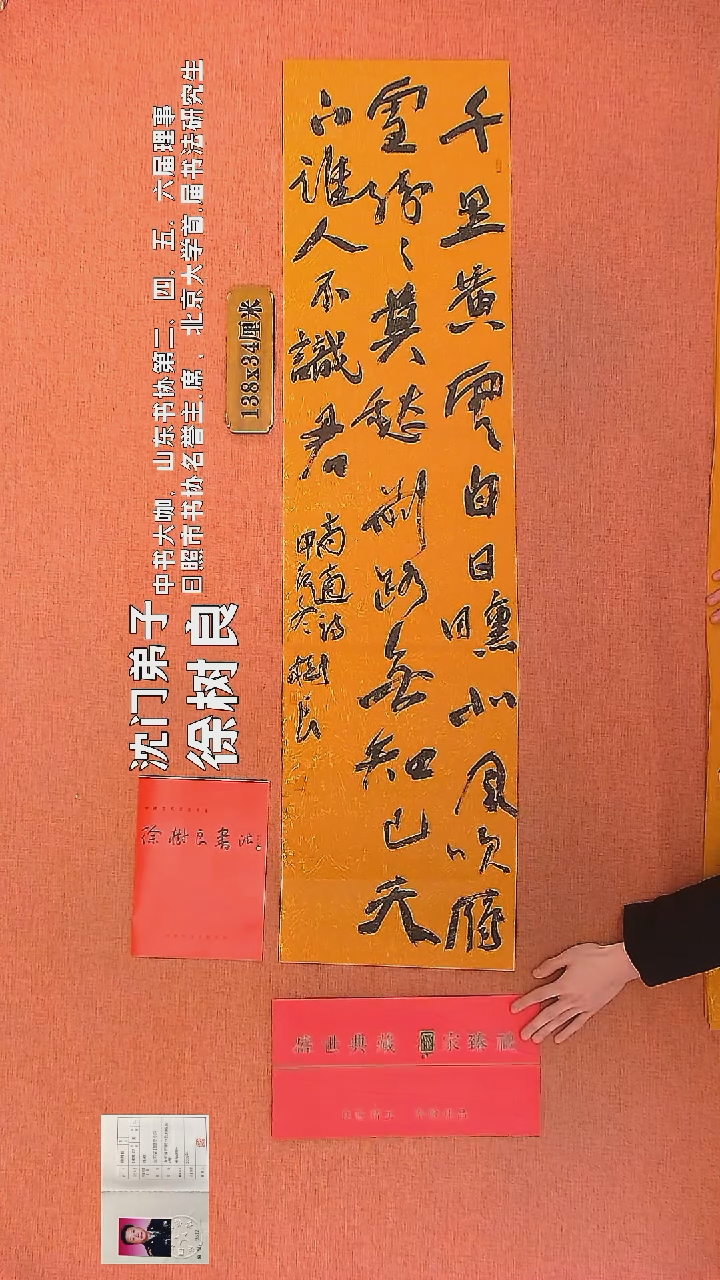 千里黄雲白日曛北風吹雁
雪紛〻莫愁前路無知己天
下誰人不識君
高適詩
甲辰冬 樹良
138x34厘米
沈门弟子
徐树良
中书大咖、山东书协第三、四、五、六届理事
日照市书协名誉主席、北京大学首届书法研究生
徐樹良書法
盛世典藏